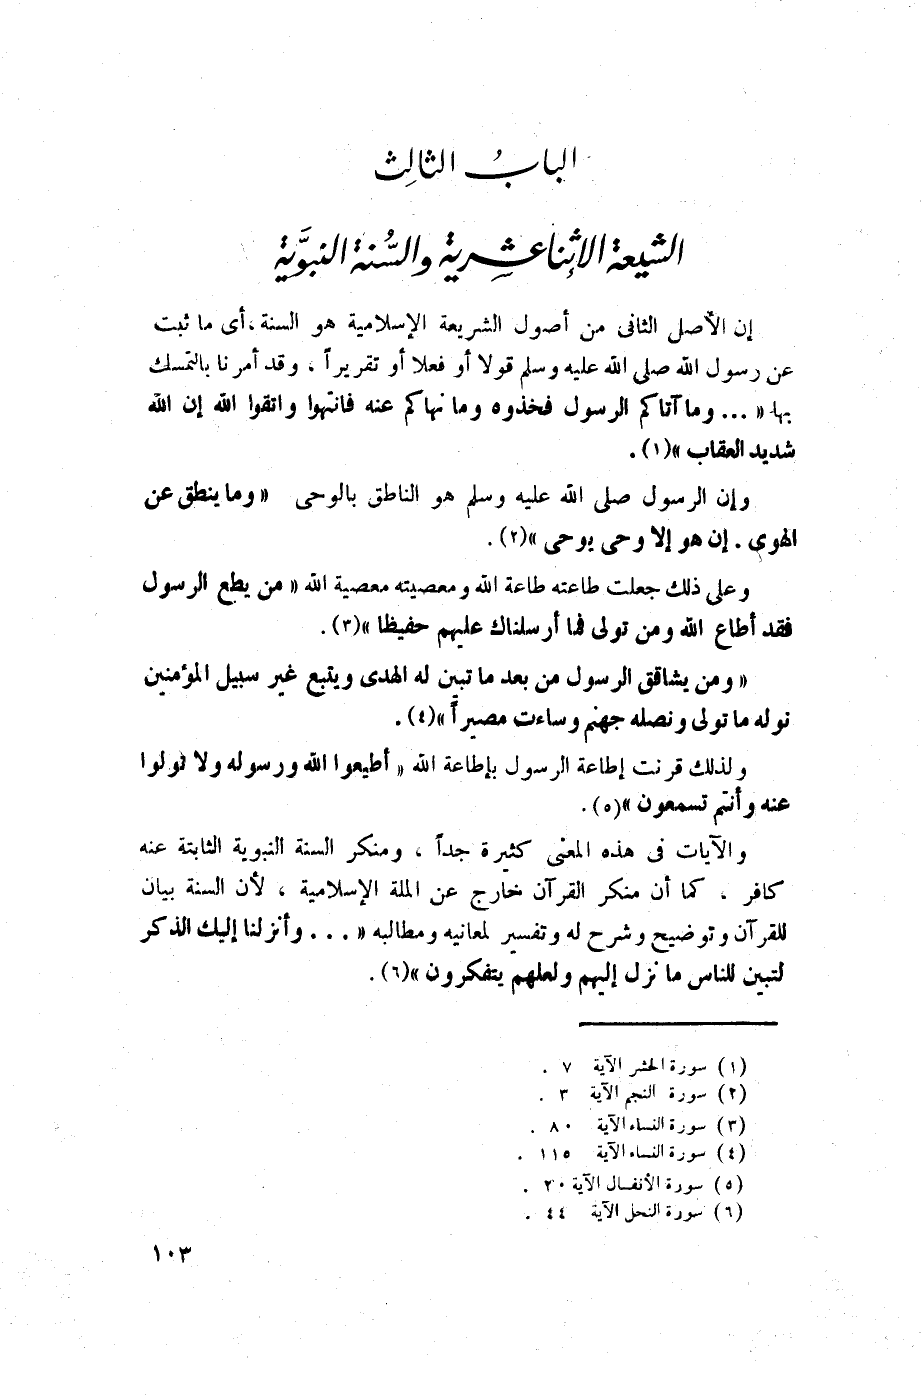 البابُ الثالِث
الشيعة الاثِنا عشِرية والسُّنة النبوَّية
إن الأصل الثانى من أصول الشريعة الإسلامية هو السنة ، أى ما ثبت
عن رسول الله صلى الله عليه وسلم قولا أو فعلا أو تقريراً ، وقد أمرنا بالتمسك
بها « ... وما آتاكم الرسول فخذوه وما نهاكم عنه فانتهوا واتقوا الله إن الله
شديد العقاب »(١) .
وإن الرسول صلى الله عليه وسلم هو الناطق بالوحى « وما ينطق عن
الهوى . إن هو إلا وحى يوحى »(٢) .
وعلى ذلك جعلت طاعته طاعة الله ومعصيته معصية الله « من يطع الرسول
فقد أطاع الله ومن تولى فما أرسلناك عليهم حفيظا »(٣) .
« ومن يشاقق الرسول من بعد ما تبين له الهدى ويتبع غير سبيل المؤمنين
نوله ما تولى ونصله جهنم وساءت مصيراً »(٤) .
ولذلك قرنت إطاعة الرسول بإطاعة الله « أطيعوا الله ورسوله ولا تولوا
عنه وأنتم تسمعون »(٥) .
والآيات فى هذه المعنى كثيرة جداً ، ومنكر السنة النبوية الثابتة عنه
كافر ، كما أن منكر القرآن خارج عن الملة الإسلامية ، لأن السنة بيان
للقرآن وتوضيح وشرح له وتفسير لمعانيه ومطالبه « ... وأنزلنا إليك الذكر
لتبين للناس ما نزل إليهم ولعلهم يتفكرون »(٦) .
(١) سورة الحشر الآية ٧ .
(٢) سورة النجم الآية ٣ .
(٣) سورة النساء الآية ٨٠ .
(٤) سورة النساء الآية ١١٥ .
(٥) سورة الأنفال الآية ٢٠ .
(٦) سورة النحل الآية ٤٤ .
١٠٣